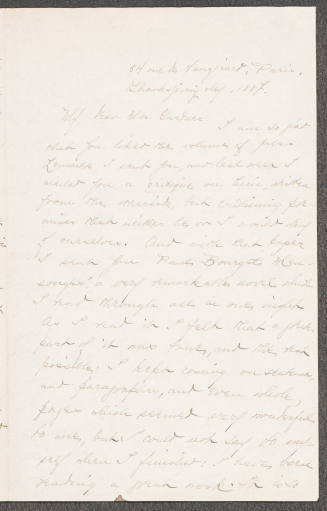 54 rue de Vaugirard, Paris,
Thanksgiving day, 1887.
My dear Mrs Gardner
I am so glad
that you liked the volume of Jules
Lemaître I sent you, and last week I
mailed you a critique on him, written
from the outside but containing
that neither he or I would say
of ourselves. And with that paper
I sent you Paul Bourget's Men-
songes, a very remarkable novel which
I read through all in one night.
As I read it I felt that a great
part of it was true, and the rest
possible; I kept coming on sentences
and paragraphs, and even whole
pages which seemed very wonderful
to me, but I could not say to my
self when I finished: I have been
reading a great work. It is